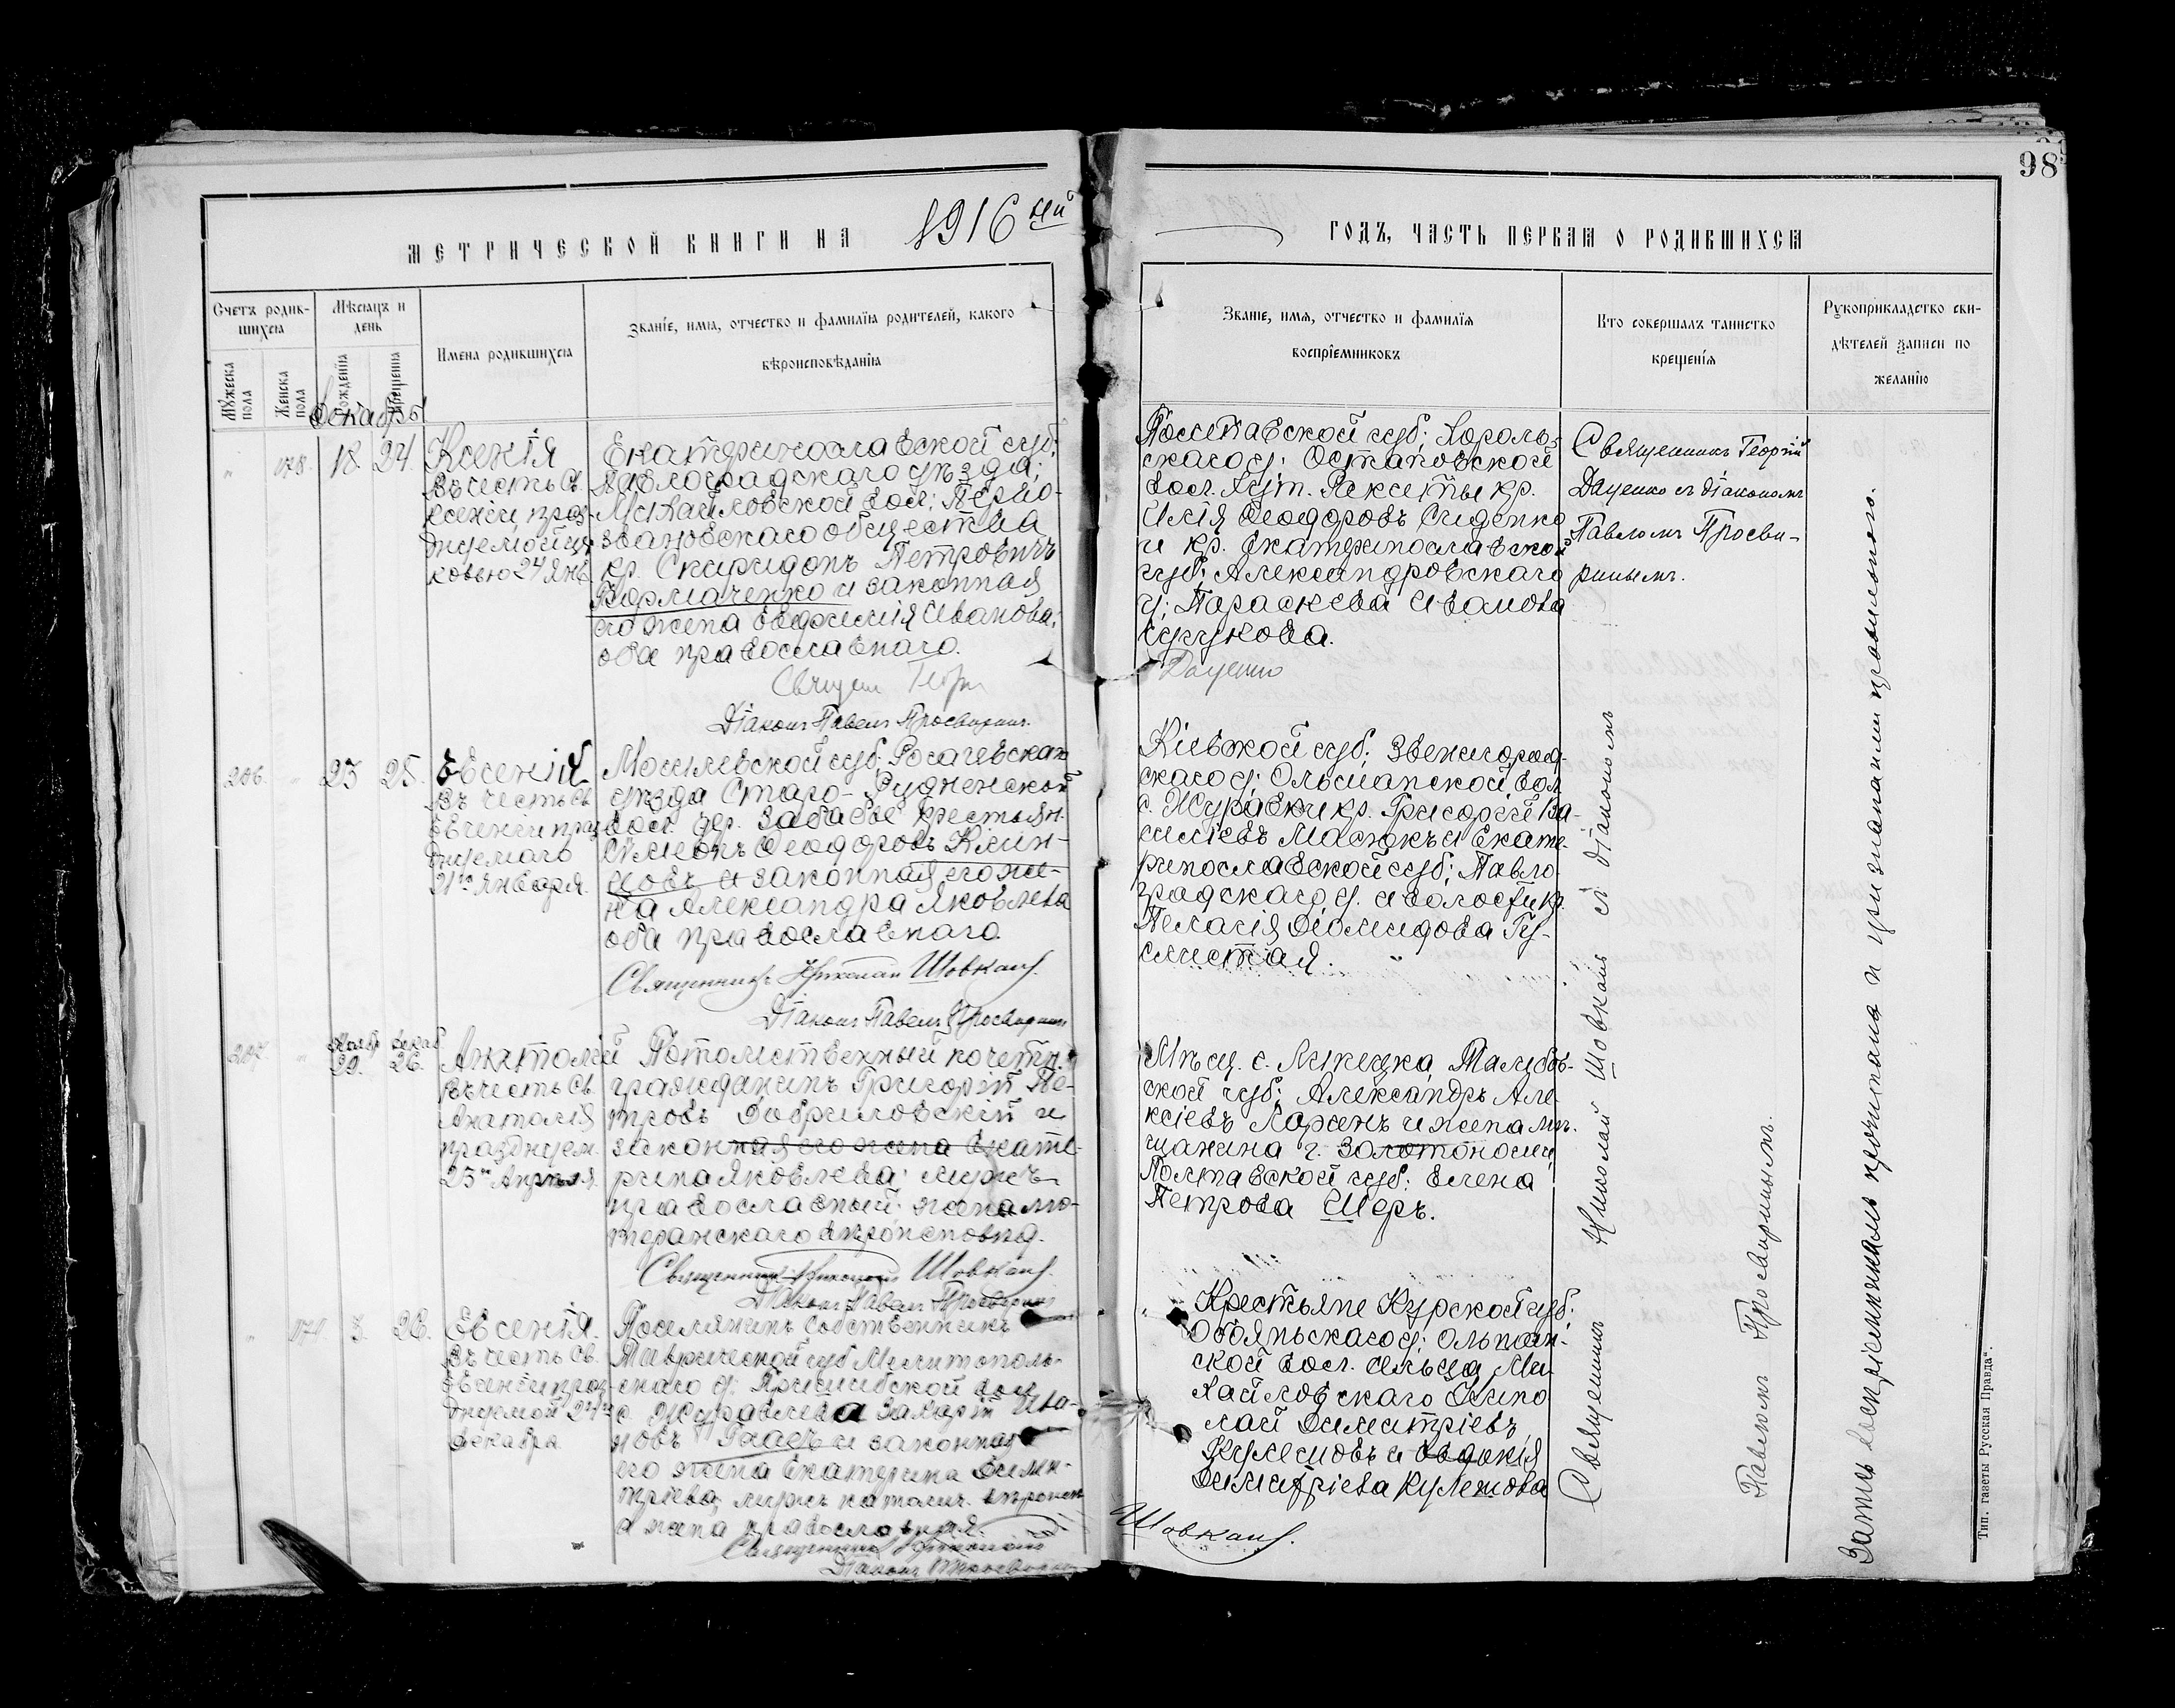 98
МЕТРИЧЕСКОЙ КНИГИ НА 1916 ый
ГОДЪ, ЧАСТЬ ПЕРВАЯ О РОДИВШИХСЯ
Счетъ родив-
шихся
Мужеска пола
Женска пола
Мѣсяцъ и
день
рожденія
крещенія
Имена родившихся
Званіе, имя, отчество и фамилія родителей, какого
вѣроисповѣданія
Званіе, имя, отчество и фамилія
воспріемниковъ
Кто совершалъ таинство
крещенія
Рукоприкладство сви-
дѣтелей записи по
желанію
Декабрь
178. 18. 24.
Ксенія
Въ честь Св.
Ксеніи, праз-
24 Янв.
Екатеринославской губ.
Павлоградскаго уѣзда;
Михайловской вол:
звановскаго общества
кр. Спиридонъ Петровичъ
и законная
его жена Евфимія Иванова,
оба православнаго.
Діаконъ Павелъ Просвиринъ.
Полтавской губ; Хороль-
скаго у; Остаповской
вол. хут.
Илія Феодоровъ Сиденко
и кр. Екатеринославской
губ; Александровскаго
у; Параскева Иванова
Даценко
Священникъ Георгій
Даценко съ діакономъ
Павломъ Просви-
ринымъ.
206. 23 25.
Евгеній
Въ честь Св.
Евгенія праз-
днуемаго
21го Января.
Могилевской губ; Рогачевскаго
уѣзда Старо-Рудненской
вол. дер. Забабье крестьян.
Симеонъ Феодоровъ Клим-
цовъ и законная его же-
на Александра Яковлева
оба православнаго
Священникъ Николай Шовкань.
Діаконъ Павелъ Просвиринъ
Кіевской губ; Звенигород-
скаго у; Ольшанской вол
с. Журавки кр. Григорій Ва-
силіевъ и Екате-
ринославской губ; Павло-
градскаго у. и волости кр.
Пелагія Діомидова Гу-
слистая.
207. Нояб. 29. Декаб. 26.
Анатолій
Въ честь Св.
Анатолія
празднуем.
23го Апрѣля
Потомственный почетн.
гражданинъ Григорій Пе-
тровъ и
законная его жена Екате-
рина Яковлева; мужъ
православный; жена лю-
теранскаго вѣроисповѣд.
Священникъ Николай Шовкань.
Діаконъ Павелъ Просвиринъ
Мѣщ. с. Тамбов-
ской губ; Александръ Але-
ксіевъ и жена мѣ-
щанина г. Золотоноши,
Полтавской губ: Елена
Петрова Шеръ.
3. 26.
Евгенія.
Въ честь Св.
Евгеніи праз-
днуемой 24го
Декабря.
Поселянинъ собственникъ
Таврической губ Мелитополь-
скаго у: Пришибской вол
с. Журавлева Захарій Ива-
новъ и законная
его жена Екатерина Дими-
тріева, мужъ католич. вѣроисп
а жена православная.
Священникъ Николай
Діаконъ Просвиринъ
Шовкань.
Крестьяне Курской губ;
Обояньскаго у;
ской вол. сельца Ми-
хайловскаго Нико-
лай Димитріевъ
Кулешовъ и Евдокія
Димитріева Кулешова
Священникъ Николай Шовкань съ діакономъ
Павломъ Просвиринымъ.
Запись воспріемникамъ прочитана и признана ими правильною.
Тип. газеты „Русская Правда“.